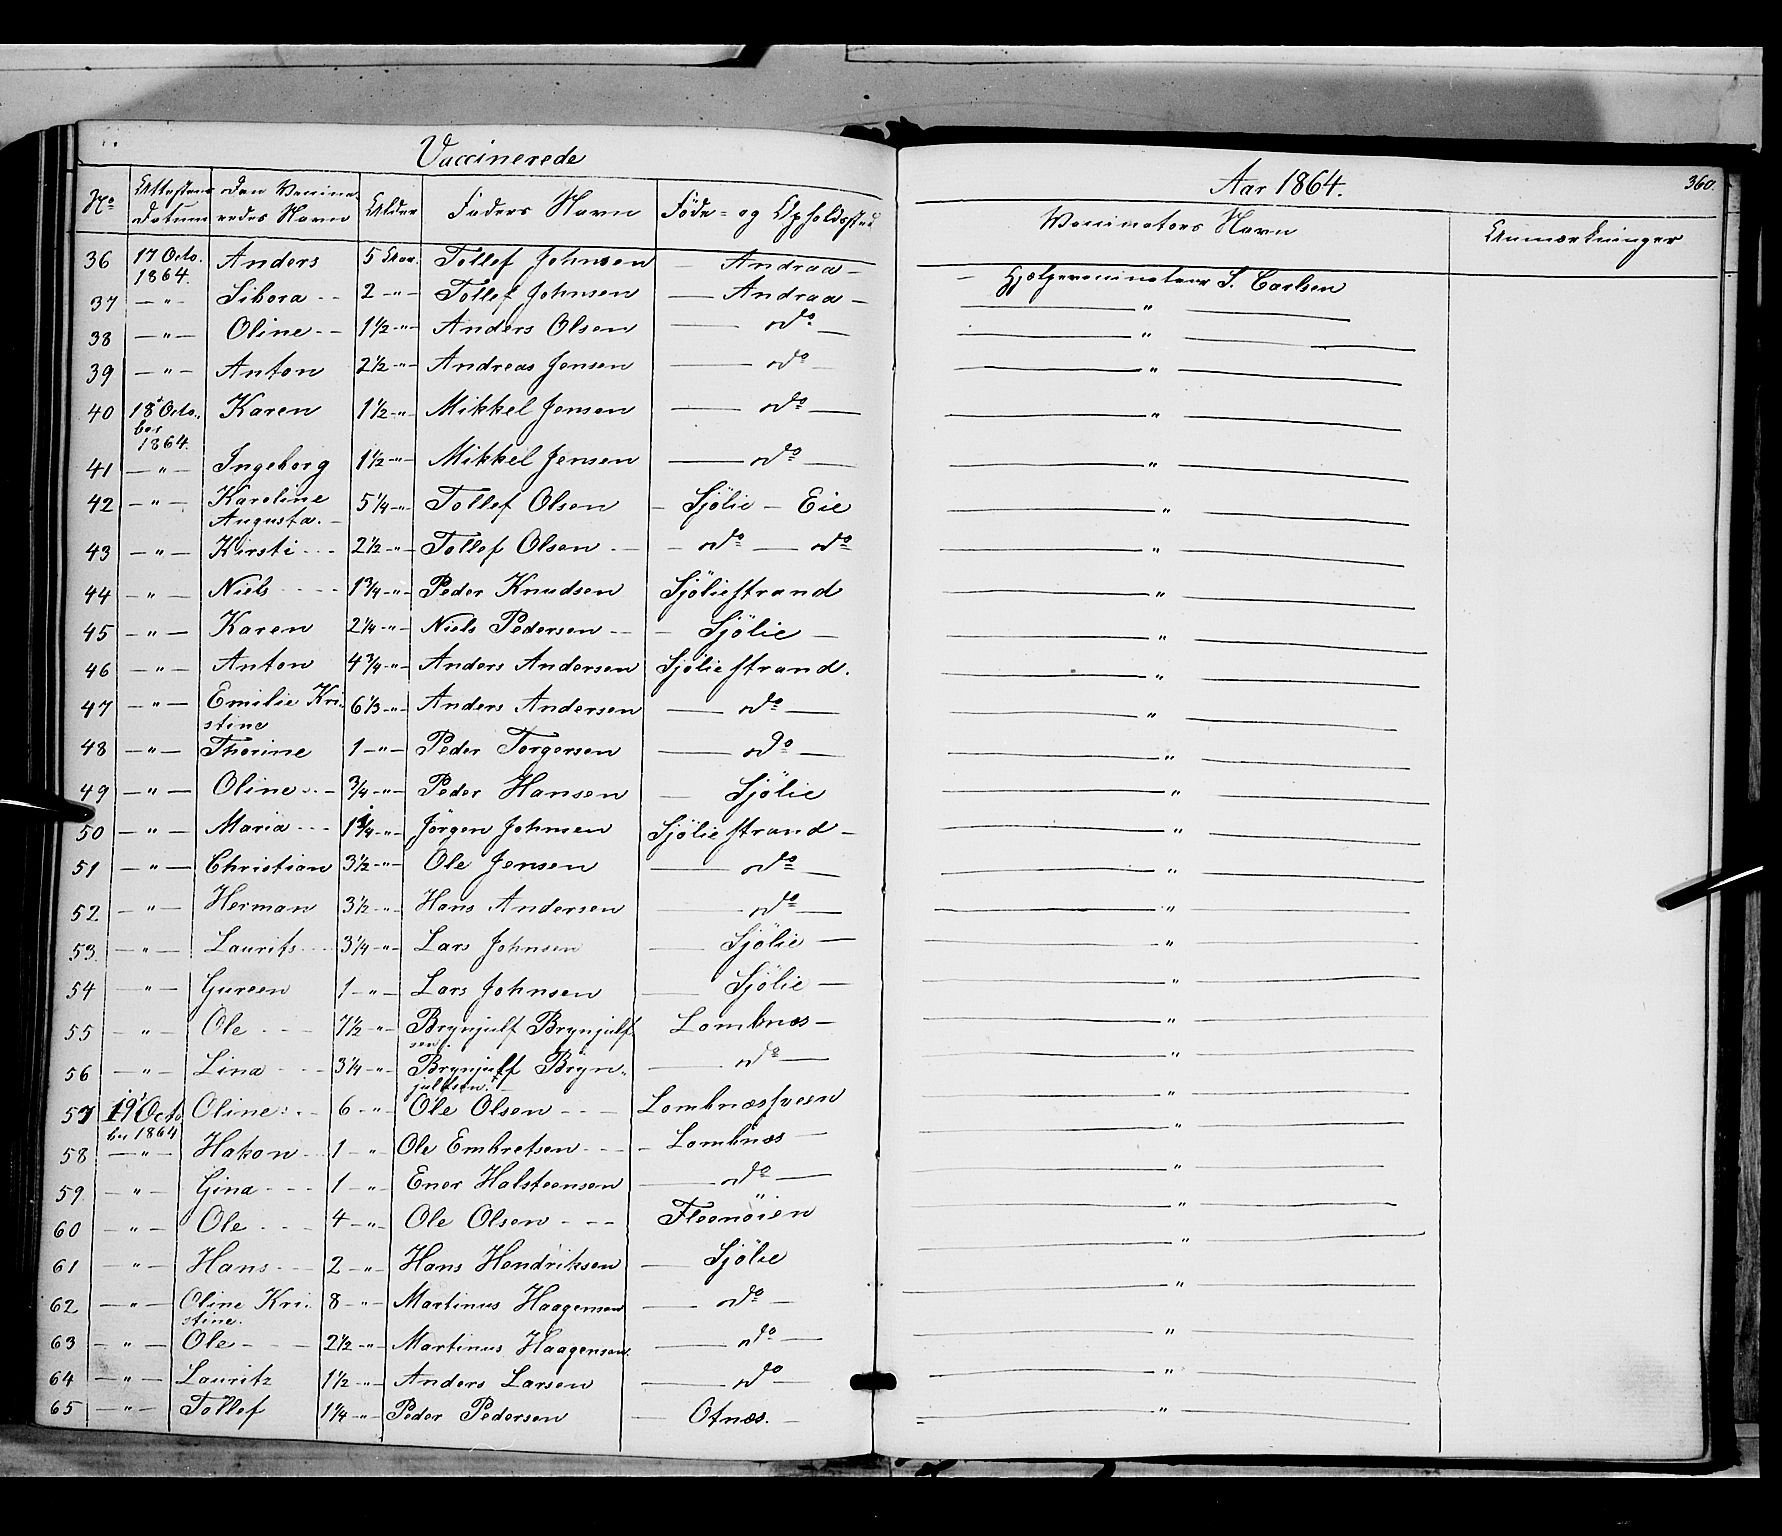 Vaccinerede
Aar 1864.
360.
No Attestens Datum Den Vaccineredes Navn Alder Faders Navn Føde- og Opholdssted Vaccinators Navn Anmærkninger
36 17 Octo. 1864. Anders 5 Aar. Tollef Johnsen — Andraa — — Hjelpevaccinateur S. Carlsen
37 — " — Sibora - - 2 - " - Tollef Johnsen — Andraa — — " —
38 — " — Oline - - 1½ - " - Anders Olsen — do — — " —
39 — " — Anton 2½ - " - Andreas Jensen — do — — " —
40 18 Octo. ber 1864. Karen 1½ - " - Mikkel Jensen — do — — " —
41 — " — Ingeborg 1½ - " - Mikkel Jensen — do — — " —
42 — " — Karoline Augusta. - 5¼ - " - Tollef Olsen — Sjölie — Eie — " —
43 — " — Kirsti - - - 2½ - " - Tollef Olsen - - — do — do — " —
44 — " — Niels - - - - 1¾ - " - Peder Knudsen Sjöliestrand — " —
45 — " — Karen 2¼ - " - Niels Pedersen - - — Sjölie — — " —
46 — " — Anton 4¾ - " - Anders Andersen Sjöliestrand. — " —
47 — " — Emilie Kristine 6⅓ - " - Anders Andersen — do — — " —
48 — " — Thorine 1 - " - Peder Torgersen — do — — " —
49 — " — Oline - - - ¾ - " - Peder Hansen — Sjölie — " —
50 — " — Maria - - - 1¼ - " - Jörgen Johnsen Sjöliestrand — — " —
51 — " — Christian 3½ - " - Ole Jensen — do — — " —
52 — " — Herman 3½ - " - Hans Andersen — do — — " —
53. — " — Laurits - - - 3¼ - " - Lars Johnsen — Sjölie — — " —
54 — " — Gureen 1 - " - Lars Johnsen — Sjölie — — " —
55 — " — Ole - - - 7½ - " - Brynjulf Brynjulfsen. Lombnæs — — " —
56 — " — Lina - - - 3¼ - " - Brynjulf Brynjulfsen. — do — — " —
57 19 Octo ber 1864 Oline - - - 6 - " - Ole Olsen - - - Lombnæsveen — " —
58 — " — Hakon - - 1 - " - Ole Embretsen - - - — Lombnæs — — " —
59. — " — Gina - - - 1 - " - Ener Halsteensen — do — — " —
60 — " — Ole - - - 4 - " - Ole Olsen - - - Floenöien — " —
61 — " — Hans - - - 2 - " - Hans Hendriksen — Sjölie — " —
62 — " — Oline Kristine. 8 - " - Martinus Haagensen — do — — " —
63 — " — Ole - - - 2½ - " - Martinus Haagensen. — do — — " —
64 — " — Lauritz 1½ - " - Anders Larsen — do — — " —
65 — " — Tollef 1¼ - " - Peder Pedersen — Otnæs. — — " —